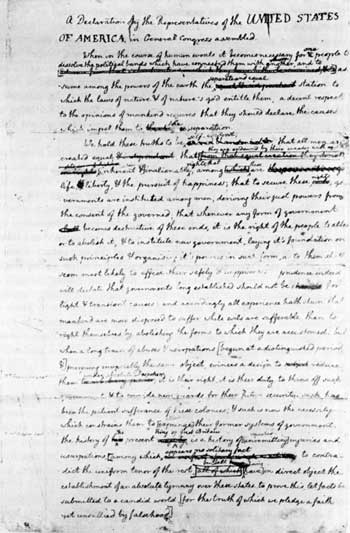 A Declaration by the Representatives of the UNITED STATES
OF AMERICA, in General Congress assembled.
When in the course of human events it becomes necessary for one people to
dissolve the political bands which have connected them with another, and to
assume among the powers of the earth the separate and equal station to
which the laws of nature & of nature's god entitle them, a decent respect
to the opinions of mankind requires that they should declare the causes
which impel them to the separation.
We hold these truths to be self-evident, that all men are
created equal
life, liberty, & the pursuit of happiness; that to secure these rights, go-
vernments are instituted among men, deriving their just powers from
the consent of the governed; that whenever any form of government
becomes destructive of these ends, it is the right of the people to alter
or to abolish it, & to institute new government, laying it's foundation on
such principles & organising it's powers in such form, as to them shall
seem most likely to effect their safety & happiness. prudence indeed
will dictate that governments long established should not be changed for
light & transient causes: and accordingly all experience hath shewn that
mankind are more disposed to suffer while evils are sufferable, than to
right themselves by abolishing the forms to which they are accustomed. but
when a long train of abuses & usurpations [begun at a distinguished period,
&] pursuing invariably the same object, evinces a design to reduce
them it is their right, it is their duty, to throw off such
government & to provide new guards for their future security. such has
been the patient sufferance of these colonies; & such is now the necessity
which constrains them to [expunge] their former systems of government.
the history of the present King of Great Britain is a history of injuries and
usurpations [among which,
dict the uniform tenor of the rest [all of which] have in direct object the
establishment of an absolute tyranny over these states. to prove this, let facts be
submitted to a candid world [for the truth of which we pledge a faith
yet unsullied by falsehood]